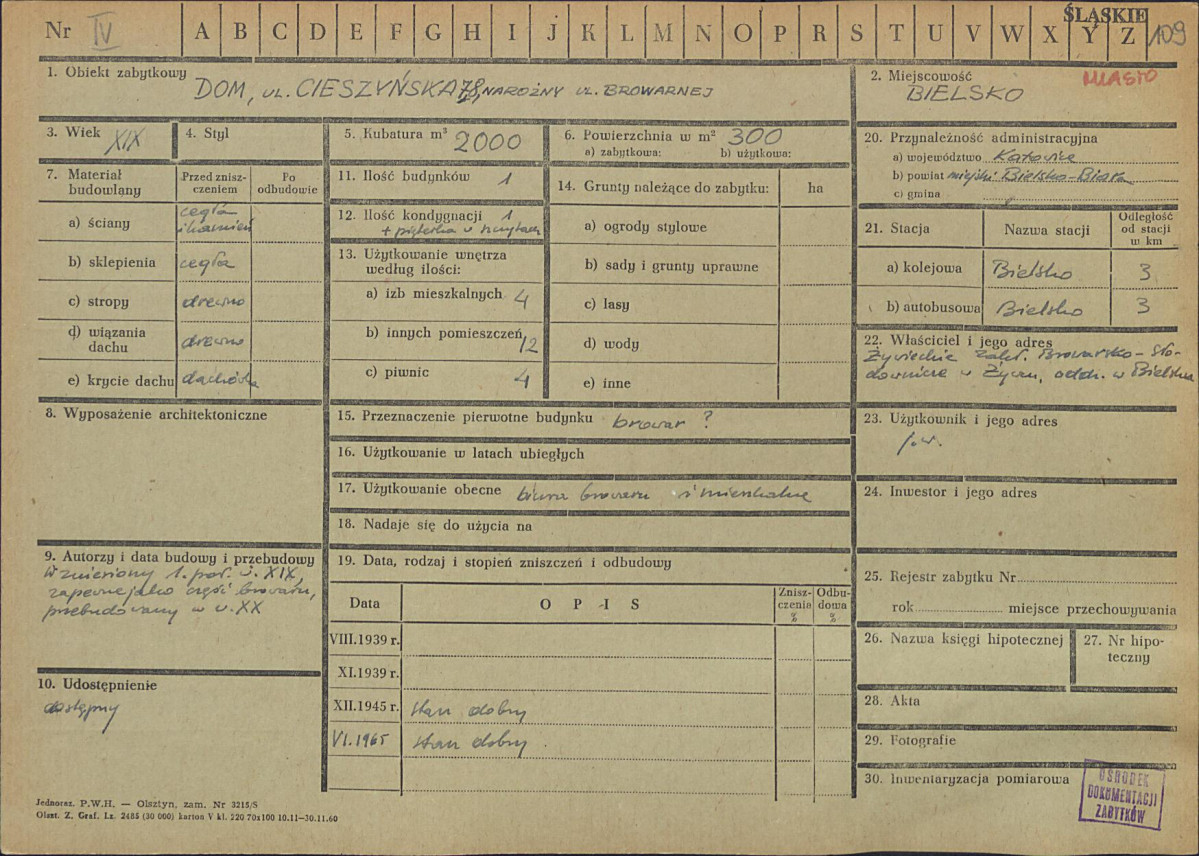 Nr IV A B C D E F G H I J K L M N O P R S T U V W X Y Z 109
ŚLĄSKIE
1. Obiekt zabytkowy
DOM, UL. CIESZYŃSKA 78, NAROŻNY UL. BROWARNEJ
2. Miejscowość MIASTO
BIELSKO
3. Wiek XIX
4. Styl
5. Kubatura m³ 2000
6. Powierzchnia w m² 300
a) zabytkowa: b) użytkowa:
7. Materiał budowlany
Przed zniszczeniem
Po odbudowie
a) ściany cegła i kamień
b) sklepienia cegła
c) stropy drewno
d) wiązania dachu drewno
e) krycie dachu dachówka
8. Wyposażenie architektoniczne
9. Autorzy i data budowy i przebudowy
Wzniesiony 1. poł. w. XIX,
zapewne jako część browaru,
przebudowany w w. XX
10. Udostępnienie
dostępny
11. Ilość budynków 1
12. Ilość kondygnacji 1
+ piąterka w szczytach
13. Użytkowanie wnętrza
według ilości:
a) izb mieszkalnych 4
b) innych pomieszczeń 12
c) piwnic 4
14. Grunty należące do zabytku: ha
a) ogrody stylowe
b) sady i grunty uprawne
c) lasy
d) wody
e) inne
15. Przeznaczenie pierwotne budynku browar ?
16. Użytkowanie w latach ubiegłych
17. Użytkowanie obecne biura browaru i mieszkalne
18. Nadaje się do użycia na
19. Data, rodzaj i stopień zniszczeń i odbudowy
Data OPIS Zniszczenia % Odbudowa %
VIII.1939 r.
XI.1939 r.
XII.1945 r. stan dobry
VI.1965 stan dobry
20. Przynależność administracyjna
a) województwo Katowice
b) powiat miejski Bielsko-Biała
c) gmina
21. Stacja Nazwa stacji Odległość od stacji w km
a) kolejowa Bielsko 3
b) autobusowa Bielsko 3
22. Właściciel i jego adres
Żywieckie Zakł. Browarsko-Sło-
downicze w Żywcu, oddz. w Bielsku
23. Użytkownik i jego adres
j.w.
24. Inwestor i jego adres
25. Rejestr zabytku Nr
rok miejsce przechowywania
26. Nazwa księgi hipotecznej
27. Nr hipoteczny
28. Akta
29. Fotografie
30. Inwentaryzacja pomiarowa
OŚRODEK
DOKUMENTACJI
ZABYTKÓW
Jednoraz. P.W.H. — Olsztyn, zam. Nr 3215/S
Olszt. Z. Graf. Lz. 2485 (30 000) karton V kl. 220 70x100 10.11—30.11.60